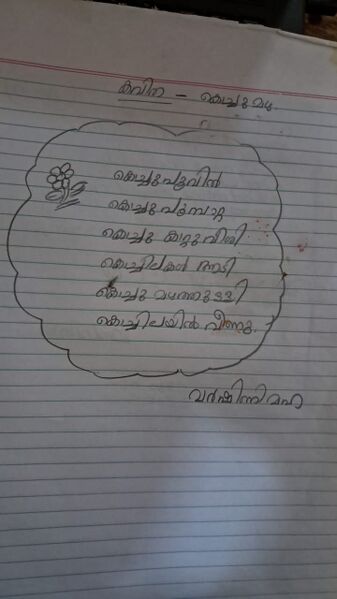 കവിത - കൊച്ചുമഴ
കൊച്ചുപൂവിൽ
കൊച്ചുപൂമ്പാറ്റ
കൊച്ചു കാറ്റുവീശി
കൊച്ചിലകൾ ആടി
കൊച്ചു മഴത്തുള്ളി
കൊച്ചിലയിൽ വീണു.